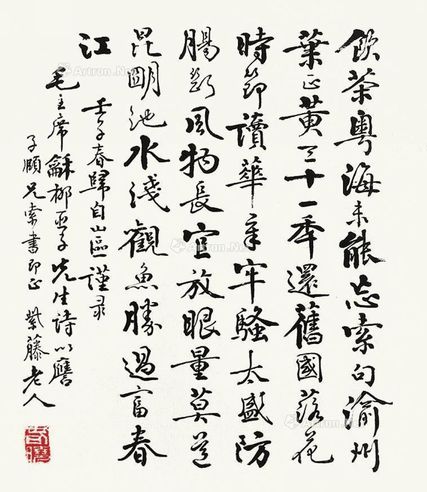 飲茶粵海未能忘索句渝州
葉正黃三十一年還舊國落花
時節讀華章牢騷太盛防
腸斷風物長宜放眼量莫道
昆明池水淺觀魚勝過富春
江
壬子春歸自山區謹录
毛主席龢柳亞子先生詩以譍
兄索書即正 紫藤老人
Artron.Net